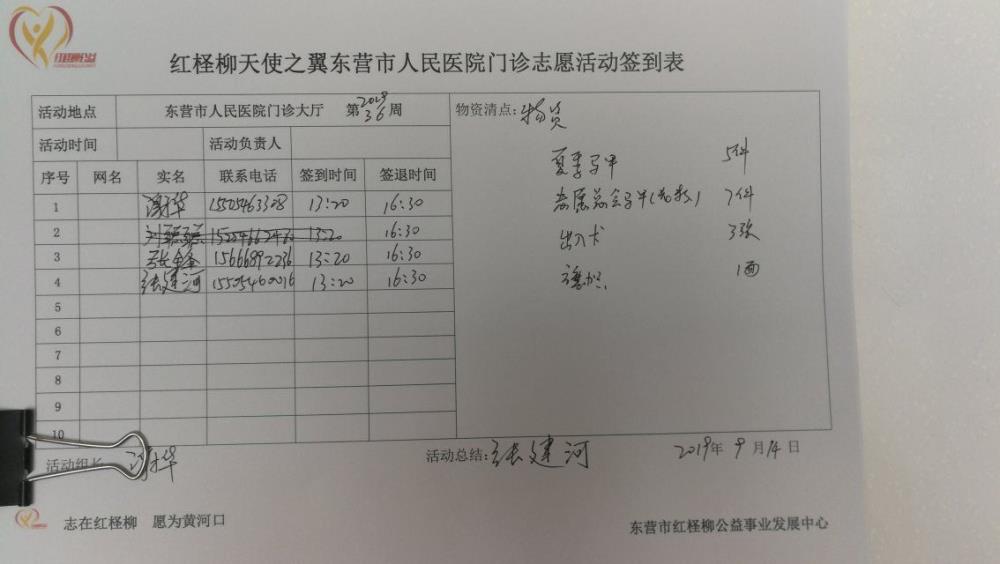 红柽柳公益
红柽柳天使之翼东营市人民医院门诊志愿活动签到表
活动地点 东营市人民医院门诊大厅 第2019 36周 物资清点:物资
活动时间 活动负责人
夏季马甲 5件
序号 网名 实名 联系电话 签到时间 签退时间
7件
1 13:20 16:30
出入卡 3张
2 13:20 16:30
3 15666892236 13:20 16:30
旗帜 1面
4 张建河 15505460016 13:20 16:30
5
6
7
8
9
10
活动组长 活动总结:张建河 2019年9月14日
志在红柽柳 愿为黄河口 东营市红柽柳公益事业发展中心